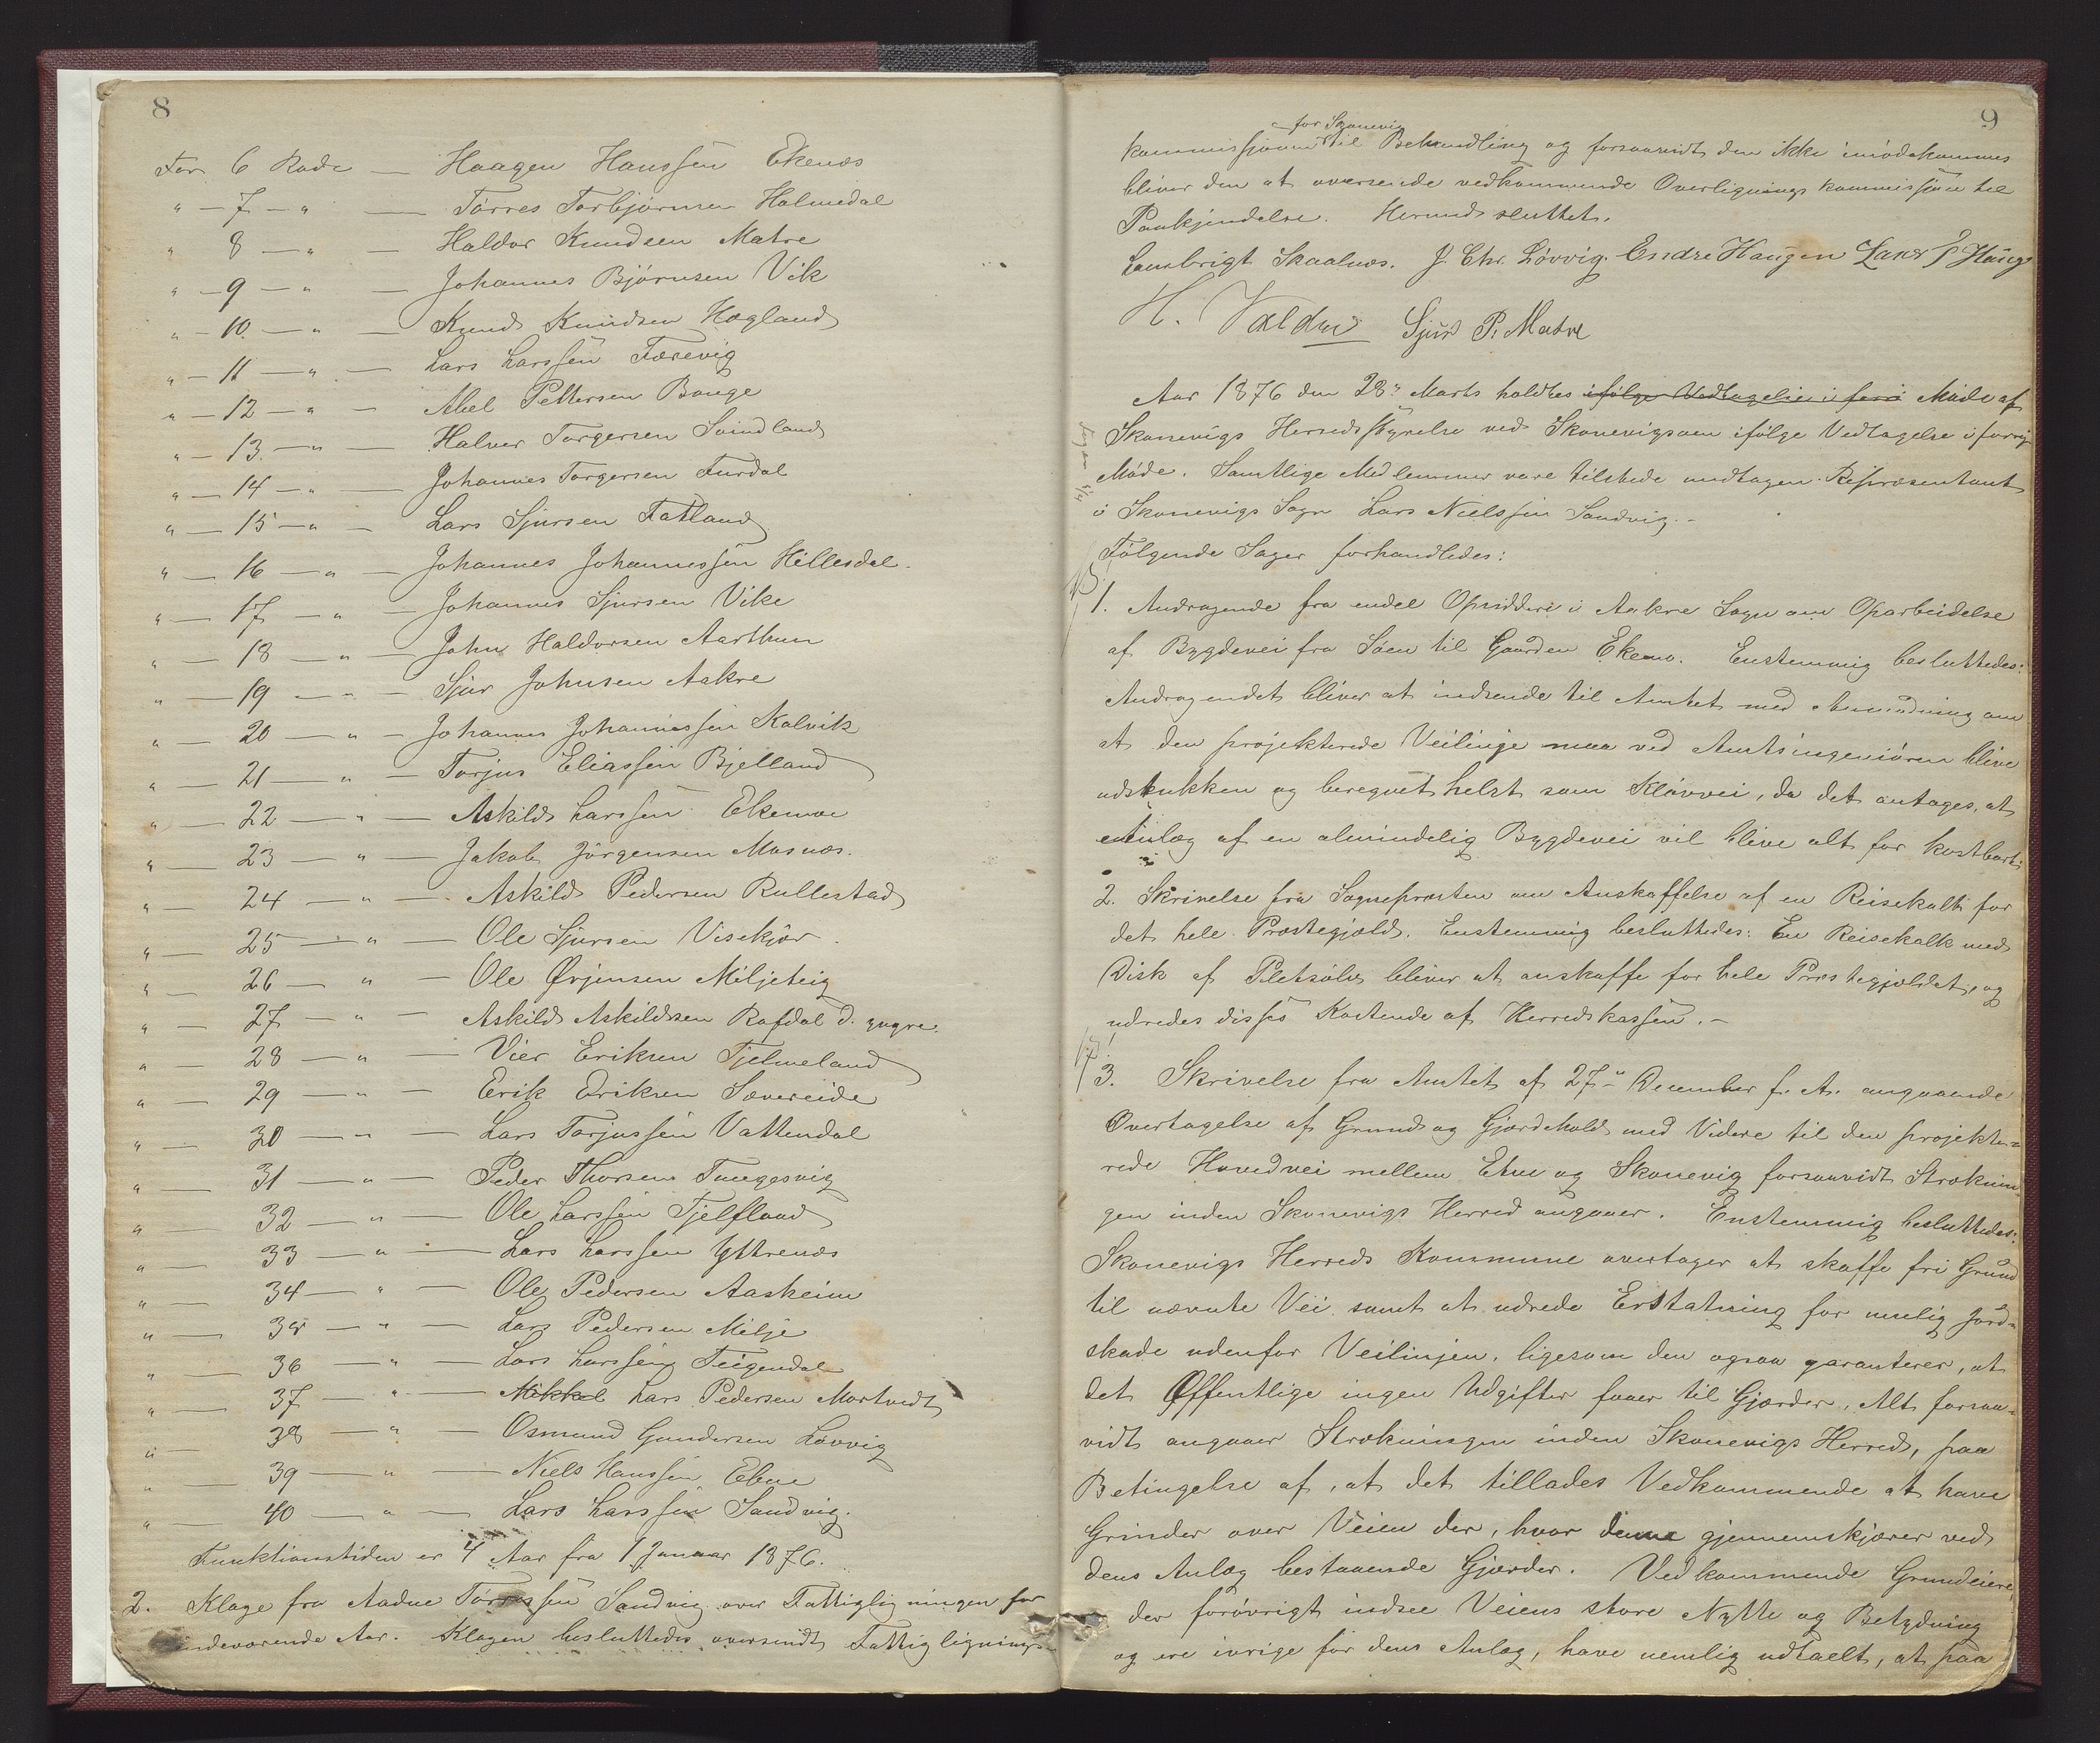 8
For 6 Rode — Haagen Hanssen Ekenæs
" — 7 — " — Tørres Torbjørnsen Holmedal
" 8 — " — Haldor Knudsen Matre
" — 9 — " — Johannes Bjørnsen Vik
" — 10 — " — Knud Knudsen Høgland
" — 11 — " — Lars Larssen Færevig
" — 12 — " — Abel Pettersen Bauge
" — 13 — " — Halver Torgersen Svindland
" — 14 — " — Johannes Torgersen Furdal
" — 15 — " — Lars Sjursen Fatland
" — 16 — " — Johannes Johannessen Hillesdal.
" — 17 — " — Johannes Sjursen Vike
" — 18 — " — John Haldorsen Aarthun
" — 19 — " — Sjur Johnsen Aakre
" — 20 — " — Johannes Johannessen Kalvik
" — 21 — " — Torjus Eliassen Bjelland
" — 22 — " — Askild Larssen Ekemoe
" — 23 — " — Jakob Jørgensen Mosnæs.
" — 24 — " — Askild Pedersen Rullestad
" — 25 — " — Ole Sjursen Visekjør.
" — 26 — " — Ole Ørjensen Miljeteig
" — 27 — " — Askild Askildsen Rafdal d. yngre.
" — 28 — " — Vier Eriksen Tjelmeland
" — 29 — " — Erik Eriksen Sævereide
" — 30 — " — Lars Torjussen Vattendal
" — 31 — " — Peder Thorsen Tungesvig
" — 32 — " — Ole Larssen Fjelflaad
" — 33 — " — Lars Larssen Yttrenæs
" — 34 — " — Ole Pedersen Aasheim
" — 35 — " — Lars Pedersen Milje
" — 36 — " — Lars Larssen Teigendal
" — 37 — " — Mikkel Lars Pedersen Mortvedt
" — 38 — " — Osmund Gundersen Løvvig
" — 39 — " — Niels Hanssen Ebne
" — 40 — " — Lars Larssen Sandvig.
Funktionstiden er 4 Aar fra 1 Januar 1876.
2. Klage fra Aadne Tørressen Sandvig over Fattigligningen for
indeværende Aar. Klagen besluttedes oversendt Fattiglignings-
9
for Skonevig
kommissionen til Behandling og forsaavidt den ikke imødekommes
bliver den at oversende vedkommende Overligningskommission til
Paakjendelse. Hermed sluttet.
Lambrigt Skaalnæs. J. Chr. Løvvig. Endre Haugen Lars P Hauge
H. Valdre Sjur P. Matre
Aar 1876 den 28" Marts holdtes ifølge Vedtagelse i forri Møde af
Skonevigs Herredsstyrelse ved Skonevigsøen ifølge Vedtagelse i forrige
Møde. Samtlige Medlemmer vare tilstede undtagen Repræsentant
i Skonevigs Sogn Lars Nielssen Sandvig.-
Følgende Sager forhandledes:
1. Andragende fra endel Opsiddere i Aakre Sogn om Oparbeidelse
af Bygdevei fra Søen til Gaarden Ekemo. Enstemmig besluttedes:
Andragendet bliver at indsende til Amtet med Anmodning om
at den projekterede Veilinje maa ved Amtsingeniøren blive
udstukken og beregnet helst som Kløvvei, da det antages, at
Anlæg af en almindelig Bygdevei vil blive alt for kostbart.
2. Skrivelse fra Sognepresten om Anskaffelse af en Reisekalk for
det hele Præstegjeld. Enstemmig besluttedes: En Reisekalk med
Disk af Pletsølv bliver at anskaffe for hele Præstegjeldet, og
udredes disses Kostende af Herredskassen.-
3. Skrivelse fra Amtet af 27" December f. A. angaaende
Overtagelse af Grund og Gjærdehold med Videre til den projekte-
rede Hovedvei mellem Etne og Skonevig forsaavidt Stræknin-
gen inden Skonevigs Herred angaaer. Enstemmig besluttedes:
Skonevigs Herreds Kommune overtager at skaffe fri Grund
til nævnte Vei samt at udrede Erstatning for muelig Jord-
skade udenfor Veilinjen, ligesom den ogsaa garanterer, at
det Offentlige ingen Udgifter faaer til Gjærder, Alt forsaa-
vidt angaaer Strækningen inden Skonevigs Herred, paa
Betingelse af, at det tillades Vedkommende at have
Grinder over Veien der, hvor denne gjennemskjærer ved
dens Anlæg bestaaende Gjærder. Vedkommende Grundeiere,
der forøvrigt indsee Veiens store Nytte og Betydning
og ere ivrige for dens Anlæg, have nemlig udtaelt, at paa